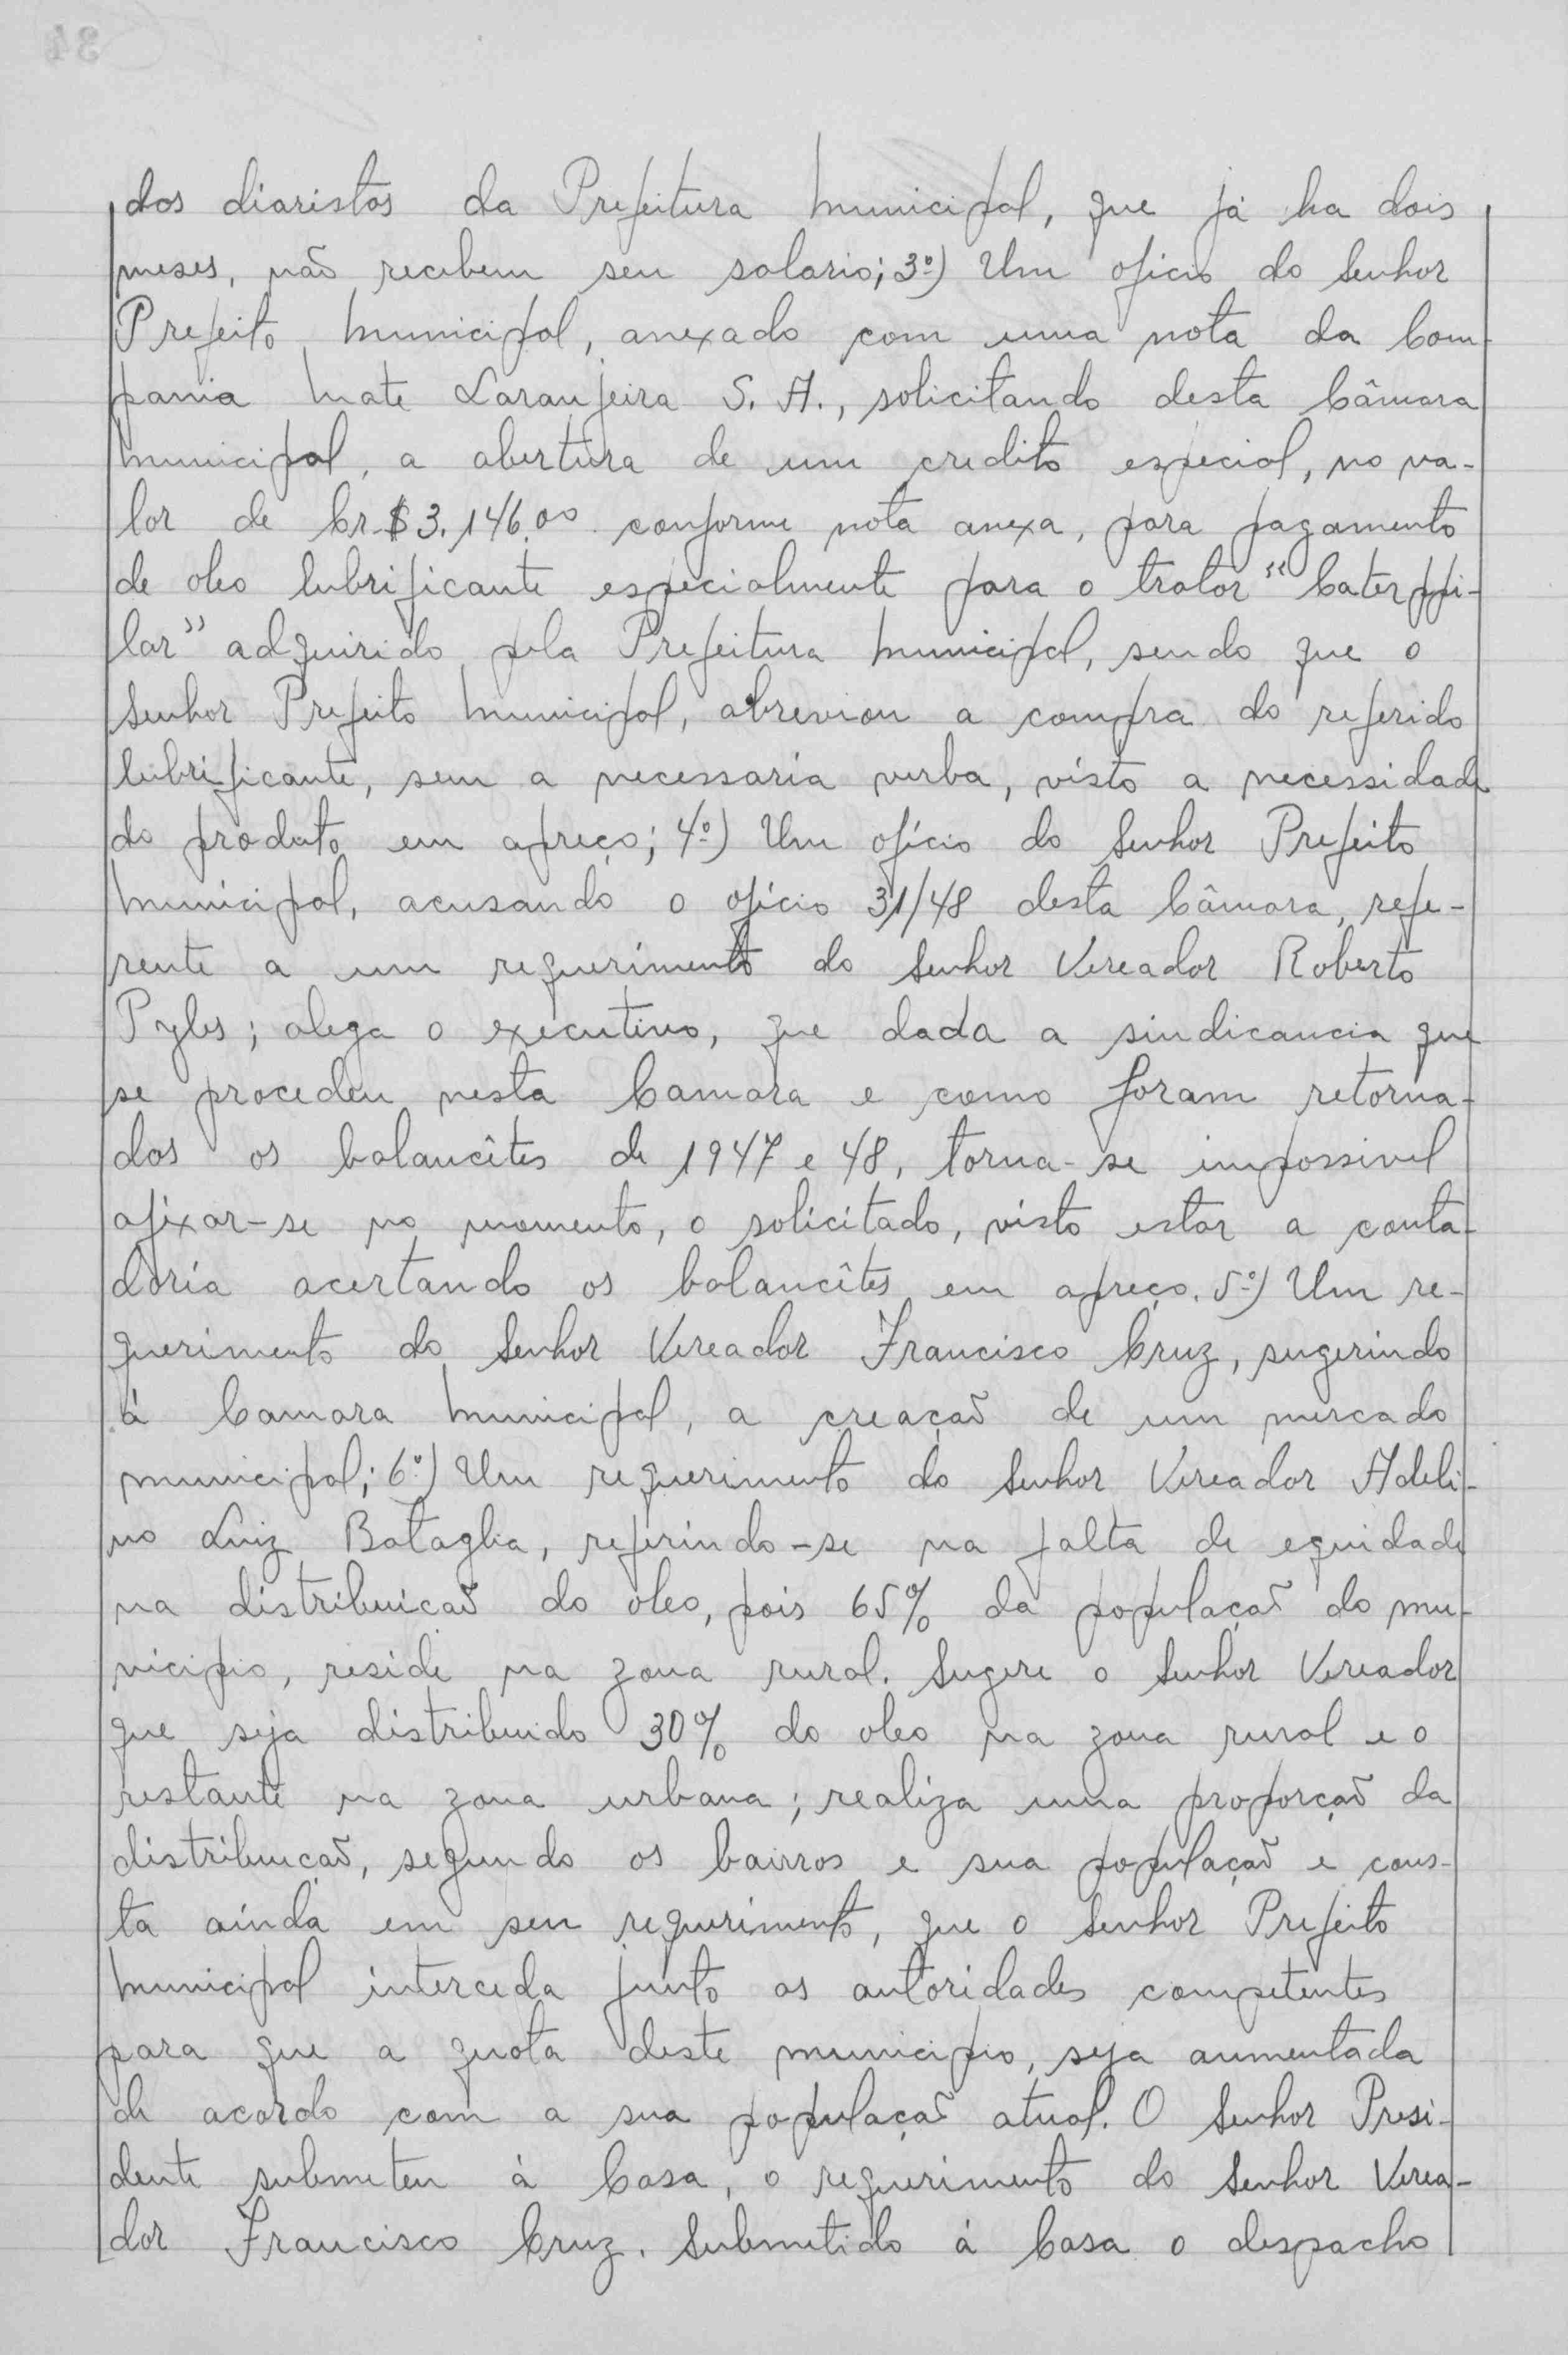 dos diaristas da Prefeitura Municipal, que já ha dois
meses, não recebem seu salario; 3º) Um oficio do Senhor
Prefeito Municipal, anexado com uma nota da Com-
pania Mate Laranjeira S. A., solicitando desta Câmara
Municipal, a abertura de um credito especial, no va-
lor de Cr.$ 3.146.00 conforme nota anexa, para pagamento
de oleo lubrificante especialmente para o trator "Caterppi-
lar" adquirido pela Prefeitura Municipal, sendo que o
Senhor Prefeito Municipal, abreviou a compra do referido
lubrificante, sem a necessaria verba, visto a necessidade
do produto em apreço; 4º) Um ofício do Senhor Prefeito
Municipal, acusando o ofício 31/48 desta Câmara, refe-
rente a um requerimento do Senhor Vereador Roberto
Pyles; alega o executivo, que dada a sindicancia que
se procedeu nesta Camara e como foram retorna-
dos os balancêtes de 1947 e 48, torna-se impossivel
afixar-se no momento, o solicitado, visto estar a conta-
doria acertando os balancêtes em apreço. 5º) Um re-
querimento do Senhor Vereador Francisco Cruz, sugerindo
á Camara Municipal, a creação de um mercado
municipal; 6º) Um requerimento do Senhor Vereador Adeli-
no Luiz Bataglia, referindo-se na falta de equidade
na distribuicão do óleo, pois 65% da população do mu-
nicipio, reside na zona rural. Sugere o Senhor Vereador
que seja distribuido 30% do oleo na zona rural e o
restante na zona urbana; realiza uma proporção da
distribuição, segundo os bairros e sua população e cons-
ta ainda em seu requerimento, que o Senhor Prefeito
Municipal interceda junto as autoridades competentes
para que a quota deste municipio, seja aumentada
de acordo com a sua população atual. O Senhor Presi-
dente submeteu á Casa, o requerimento do Senhor Verea-
dor Francisco Cruz. Submetido á Casa o despacho